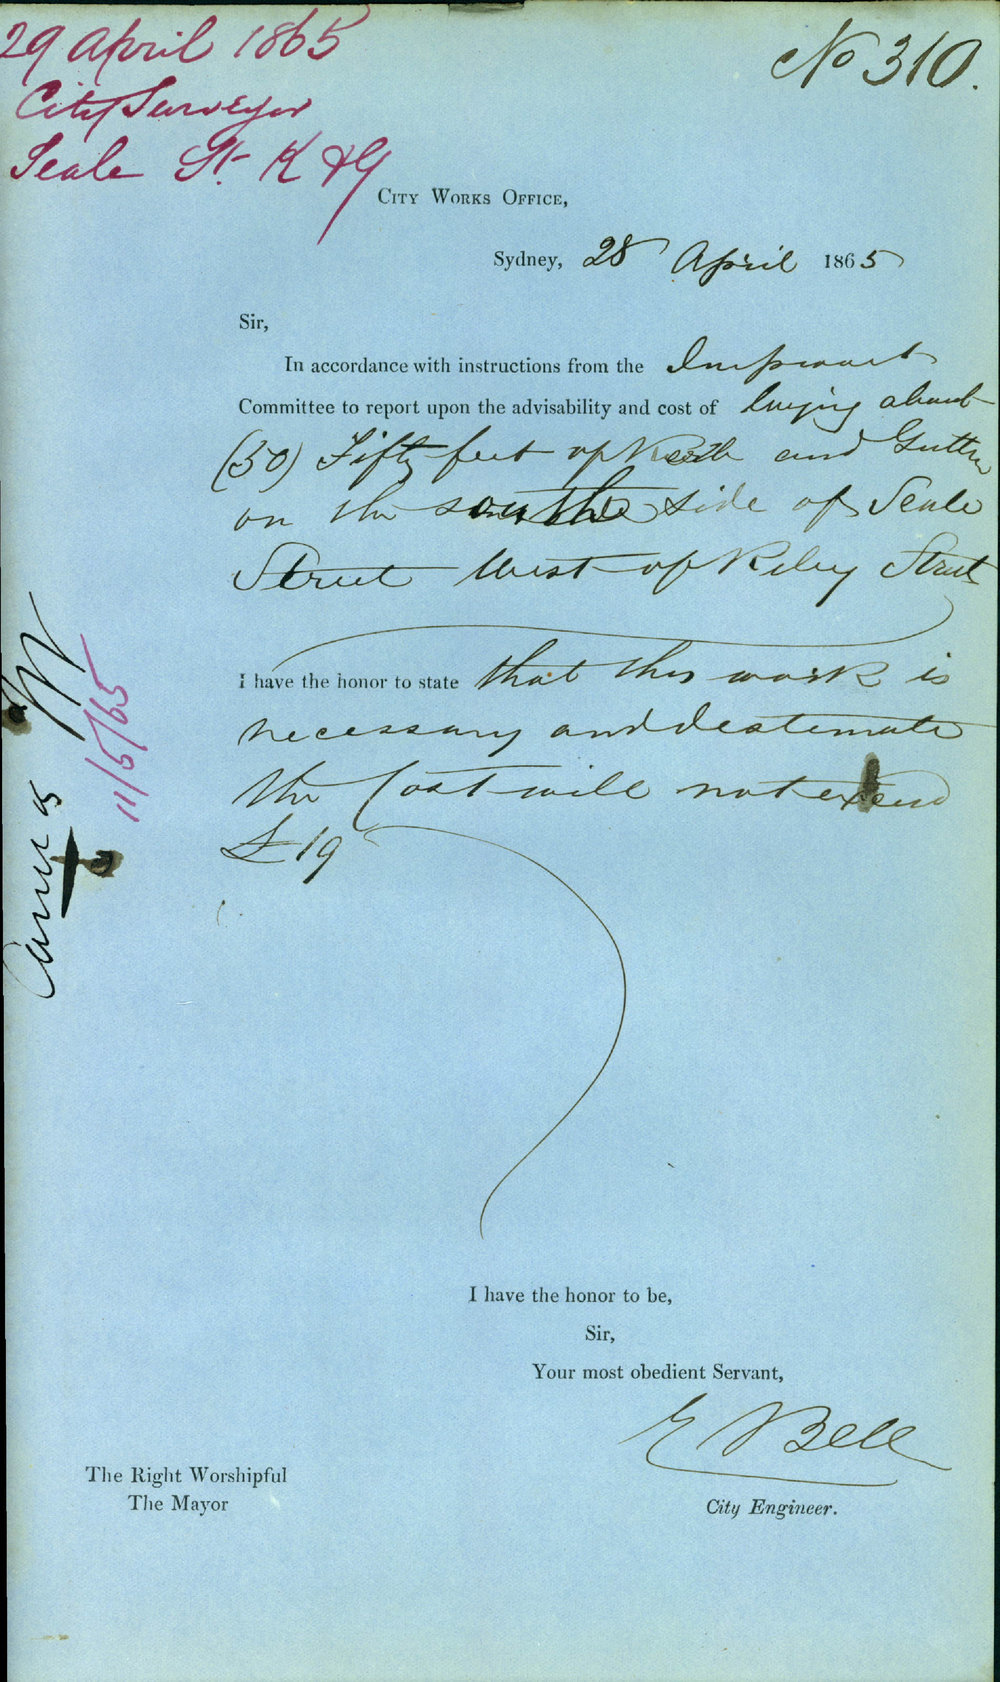 29 April 1865
City Surveyor
Seale St. K & G
No 310.
City Works Office,
Sydney, 28 April 1865
Sir,
In accordance with instructions from the Improvmt
Committee to report upon the advisability and cost of laying about
(50) Fifty feet of Kerb and Gutter
on the south side of Seale
Street West of Riley Street
I have the honor to state that this work is
necessary and I estimate
the Cost will not exceed
£19
11/5/65
I have the honor to be,
Sir,
Your most obedient Servant,
E Bell
City Engineer.
The Right Worshipful
The Mayor